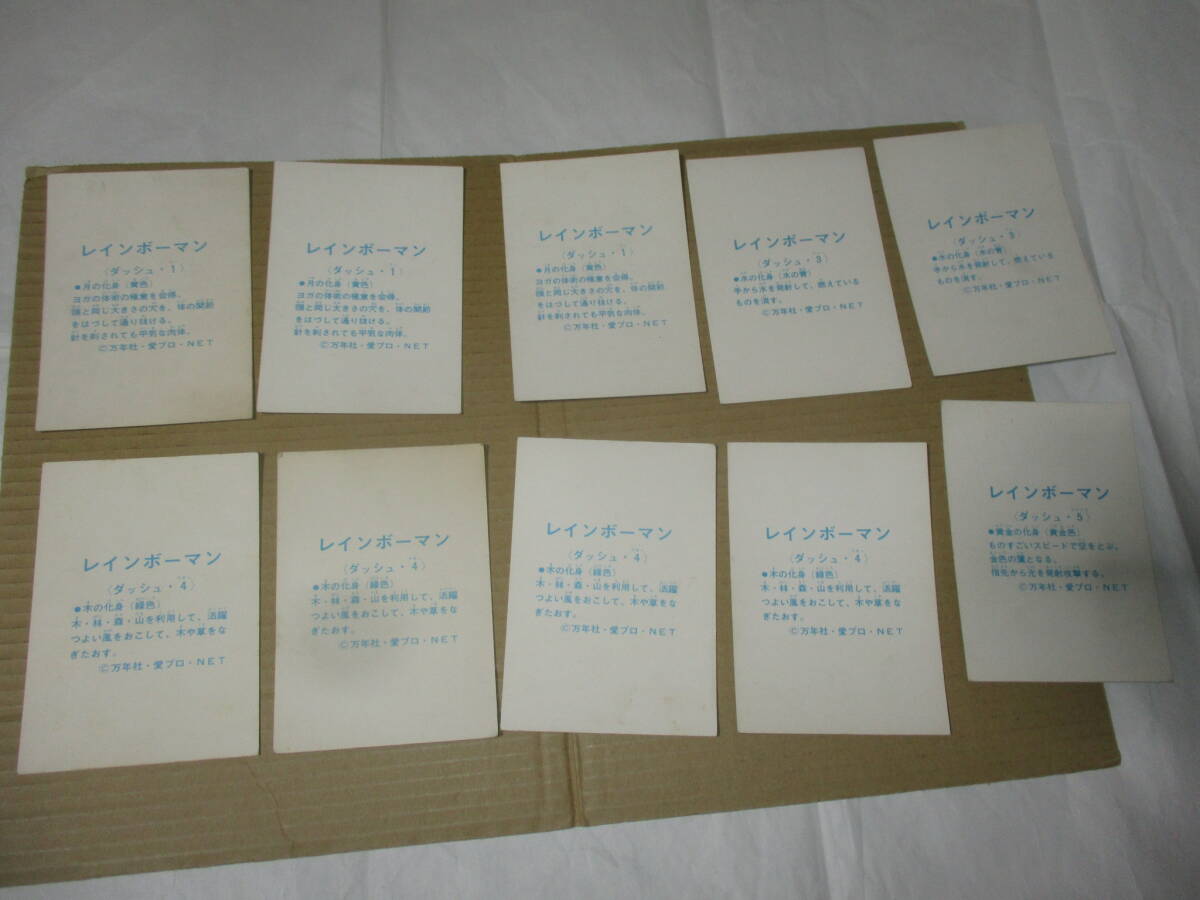 レインボーマン
(ダッシュ・1)
●月の化身(黄色)
ヨガの体術の極意を会得。
頭と同じ大きさの穴を、体の関節
をはづして通り抜ける。
針を刺されても平気な肉体。
©万年社・愛プロ・NET
レインボーマン
(ダッシュ・1)
●月の化身(黄色)
ヨガの体術の極意を会得。
頭と同じ大きさの穴を、体の関節
をはづして通り抜ける。
針を刺されても平気な肉体。
©万年社・愛プロ・NET
レインボーマン
(ダッシュ・1)
●月の化身(黄色)
ヨガの体術の極意を会得。
頭と同じ大きさの穴を、体の関節
をはづして通り抜ける。
針を刺されても平気な肉体。
©万年社・愛プロ・NET
レインボーマン
(ダッシュ・3)
●水の化身(水の青)
手から水を発射して、燃えている
ものを消す。
©万年社・愛プロ・NET
レインボーマン
(ダッシュ・3)
●水の化身(水の青)
手から水を発射して、燃えている
ものを消す。
©万年社・愛プロ・NET
レインボーマン
(ダッシュ・4)
●木の化身(緑色)
木・林・森・山を利用して、活躍
つよい風をおこして、木や草をな
ぎたおす。
©万年社・愛プロ・NET
レインボーマン
(ダッシュ・4)
●木の化身(緑色)
木・林・森・山を利用して、活躍
つよい風をおこして、木や草をな
ぎたおす。
©万年社・愛プロ・NET
レインボーマン
(ダッシュ・4)
●木の化身(緑色)
木・林・森・山を利用して、活躍
つよい風をおこして、木や草をな
ぎたおす。
©万年社・愛プロ・NET
レインボーマン
(ダッシュ・4)
●木の化身(緑色)
木・林・森・山を利用して、活躍
つよい風をおこして、木や草をな
ぎたおす。
©万年社・愛プロ・NET
レインボーマン
(ダッシュ・5)
●黄金の化身(黄金色)
ものすごいスピードで空をとぶ。
金色の鷹となる。
指先から光を発射攻撃する。
©万年社・愛プロ・NET